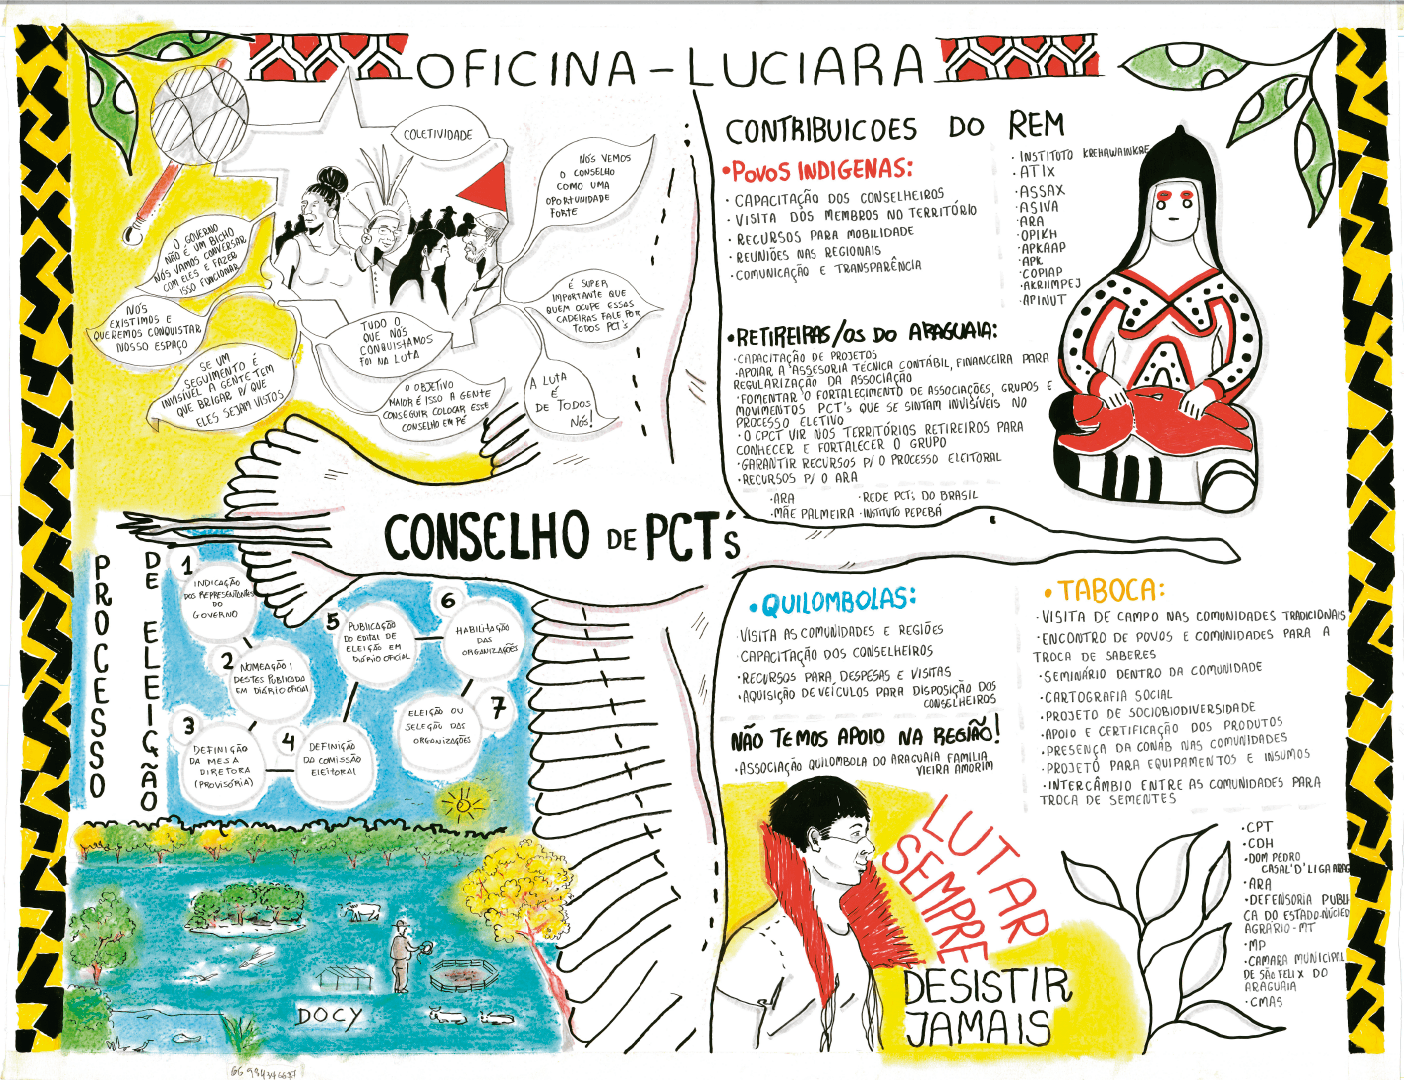 OFICINA - LUCIARA
COLETIVIDADE
NÓS VEMOS
O CONSELHO
COMO UMA
OPORTUNIDADE
FORTE
O GOVERNO
NÃO É UM BICHO
NÓS VAMOS CONVERSAR
COM ELES E FAZER
ISSO FUNCIONAR
NÓS
EXISTIMOS E
QUEREMOS CONQUISTAR
NOSSO ESPAÇO
SE UM
SEGUIMENTO É
INVISÍVEL A GENTE TEM
QUE BRIGAR P/ QUE
ELES SEJAM VISTOS
TUDO O
QUE NÓS
CONQUISTAMOS
FOI NA LUTA
O OBJETIVO
MAIOR É ISSO A GENTE
CONSEGUIR COLOCAR ESSE
CONSELHO EM PÉ
É SUPER
IMPORTANTE QUE
QUEM OCUPE ESSAS
CADEIRAS FALE POR
TODOS PCT's
A LUTA
É
DE TODOS
NÓS!
CONTRIBUICOES DO REM
•POVOS INDIGENAS:
· CAPACITAÇÃO DOS CONSELHEIROS
· VISITA DOS MEMBROS NO TERRITÓRIO
· RECURSOS PARA MOBILIDADE
· REUNIÕES NAS REGIONAIS
· COMUNICAÇÃO E TRANSPARÊNCIA
· INSTITUTO KREHAWAINKRE
· ATIX
· ASSAX
· ASIVA
· ARA
· OPIKH
· APKAAP
· APK
· COPIAP
· AKRIIMPEJ
· APINUT
•RETIREIRAS/OS DO ARAGUAIA:
· CAPACITAÇÃO DE PROJETOS
· APOIAR A ASSESORIA TÉCNICA CONTÁBIL, FINANCEIRA PARA
REGULARIZAÇÃO DA ASSOCIAÇÃO
· FOMENTAR O FORTALECIMENTO DE ASSOCIAÇÕES, GRUPOS E
MOVIMENTOS PCT's QUE SE SINTAM INVISÍVEIS NO
PROCESSO ELETIVO
· O CPCT VIR NOS TERRITÓRIOS RETIREIROS PARA
CONHECER E FORTALECER O GRUPO
· GARANTIR RECURSOS P/ O PROCESSO ELEITORAL
· RECURSOS P/ O ARA
· ARA · REDE PCTs DO BRASIL
· MÃE PALMEIRA · INSTITUTO PEPEBÁ
CONSELHO DE PCT's
PROCESSO
DE ELEIÇÃO
1
INDICAÇÃO
DOS REPRESENTANTES
DO
GOVERNO
2
NOMEAÇÃO
DESTES PUBLICADA
EM DIÁRIO OFICIAL
3
DEFINIÇÃO
DA MESA
DIRETORA
(PROVISÓRIA)
4
DEFINIÇÃO
DA COMISSÃO
ELEITORAL
5
PUBLICAÇÃO
DO EDITAL DE
ELEIÇÃO EM
DIÁRIO OFICIAL
6
HABILITAÇÃO
DAS
ORGANIZAÇÕES
7
ELEIÇÃO OU
SELEÇÃO DAS
ORGANIZAÇÕES
DOCY
•QUILOMBOLAS:
· VISITA AS COMUNIDADES E REGIÕES
· CAPACITAÇÃO DOS CONSELHEIROS
· RECURSOS PARA DESPESAS E VISITAS
· AQUISIÇÃO DE VEÍCULOS PARA DISPOSIÇÃO DOS
CONSELHEIROS
NÃO TEMOS APOIO NA REGIÃO!
· ASSOCIAÇÃO QUILOMBOLA DO ARAGUAIA FAMILIA
VIEIRA AMORIM
•TABOCA:
· VISITA DE CAMPO NAS COMUNIDADES TRADICIONAIS
· ENCONTRO DE POVOS E COMUNIDADES PARA A
TROCA DE SABERES
· SEMINÁRIO DENTRO DA COMUNIDADE
· CARTOGRAFIA SOCIAL
· PROJETO DE SOCIOBIODIVERSIDADE
· APOIO E CERTIFICAÇÃO DOS PRODUTOS
· PRESENÇA DA CONAB NAS COMUNIDADES
· PROJETO PARA EQUIPAMENTOS E INSUMOS
· INTERCÂMBIO ENTRE AS COMUNIDADES PARA
TROCA DE SEMENTES
· CPT
· CDH
· DOM PEDRO
CASAL'D'LIGA
· ARA
· DEFENSORIA PUBLI
CA DO ESTADO-NÚCLEO
AGRÁRIO-MT
· MP
· CAMARA MUNICIPAL
DE SÃO FELIX DO
ARAGUAIA
· CMAS
LUTAR
SEMPRE
DESISTIR
JAMAIS